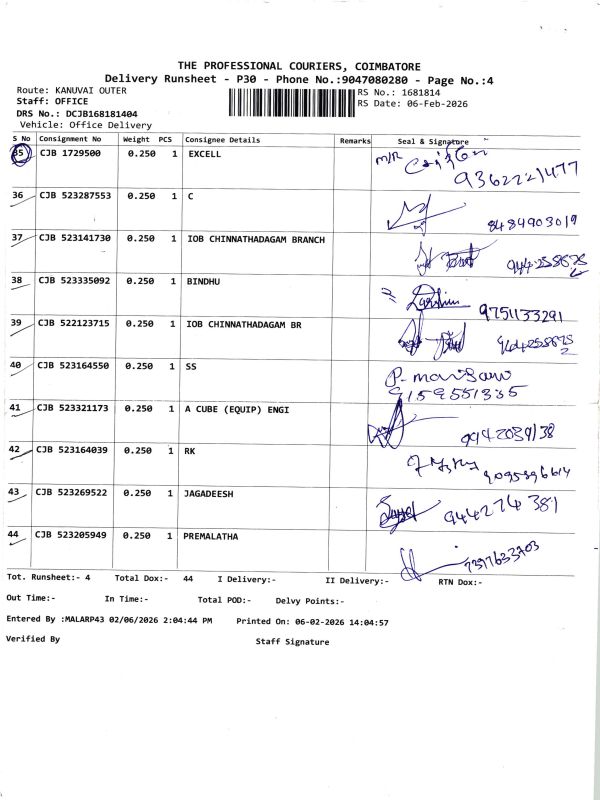 THE PROFESSIONAL COURIERS, COIMBATORE
Delivery Runsheet - P30 - Phone No.:9047080280 - Page No.:4
Route: KANUVAI OUTER RS No.: 1681814
Staff: OFFICE RS Date: 06-Feb-2026
DRS No.: DCJB168181404
Vehicle: Office Delivery
S No Consignment No Weight PCS Consignee Details Remarks Seal & Signature
35 CJB 1729500 0.250 1 EXCELL M/R
9362221477
36 CJB 523287553 0.250 1 C
8484903019
37 CJB 523141730 0.250 1 IOB CHINNATHADAGAM BRANCH
38 CJB 523335092 0.250 1 BINDHU
9751133291
39 CJB 522123715 0.250 1 IOB CHINNATHADAGAM BR
40 CJB 523164550 0.250 1 SS
9159551335
41 CJB 523321173 0.250 1 A CUBE (EQUIP) ENGI
42 CJB 523164039 0.250 1 RK
43 CJB 523269522 0.250 1 JAGADEESH
944274 381
44 CJB 523205949 0.250 1 PREMALATHA
Tot. Runsheet:- 4 Total Dox:- 44 I Delivery:- II Delivery:- RTN Dox:-
Out Time:- In Time:- Total POD:- Delvy Points:-
Entered By :MALARP43 02/06/2026 2:04:44 PM Printed On: 06-02-2026 14:04:57
Verified By Staff Signature